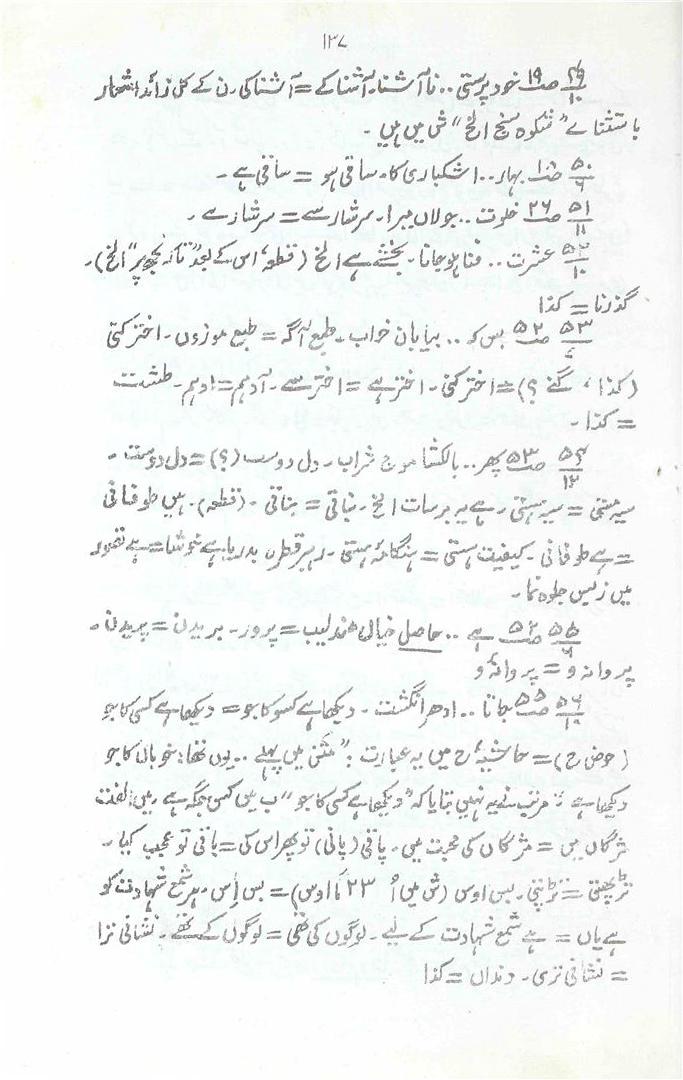 ۱۳۷
۴۹/۱۰ صـ ۱۹ خود پرستی .. نا آشنا۔ آشنا کے = آشنا کی۔ ن کے کل زائد اشعار
باستثنائے ”شکوہ سنج الخ“ ش میں ہیں ۔
۵۰/۶ صـ بہار .. اشکباری کا۔ ساقی ہو = ساقی ہے ۔
۵۱/۱۱ صـ ۲۶ خلوت .. جولاں میرا۔ سرشار سے = سرشار سے ۔
۵۲/۱۰ عشرت .. فنا ہو جانا۔ بخشے ہے الخ (قطعہ، اس کے بعد ”تا کہ تجھ پر“ الخ)۔
گذرنا = کذا
۵۳ صـ ۵۲ بس کہ .. بیابان خواب۔ طبع آگہ = طبع موزوں۔ اختر کنی
(کذا، گنے ؟) = اختر کنی۔ اختر ہے = اختر سے۔ آدہم = ادہم۔ طشت
= کذا ۔
۵۴/۱۳ صـ ۵۳ پھر .. بالکشا موج شراب۔ دل دوست (؟) = دل دوست ۔
سیر مستی = سیر ہستی۔ ہے یہ برسات الخ۔ نباتی = بناتی ۔ (قطعہ)۔ ہیں طوفانی
= ہے طوفانی۔ کیفیت ہستی = ہنگامۂ ہستی۔ رہبر قطرہ بدریا ہے خوشا = ہے تصور
میں زبس جلوہ نما۔
۵۵/۹ صـ ۵۴ ہے .. حاصل خیال عندلیب = پرور۔ بریدن = پریدن ۔
پروانہ و = پروانۂ و
۵۶/۱۰ صـ ۵۵ جانا .. ادھر انگشت۔ دیکھا ہے کسو کا جو = دیکھا ہے کسی کا جو
(حوض ح) = حاشیۂ ح میں یہ عبارت : ”متن میں پہلے .. یوں تھا: خوباں کا جو
دیکھا ہے“ مرتب نے یہ نہیں بتایا کہ ”دیکھا ہے کسی کا جو“ ب میں کس جگہ ہے۔ میں الفت
مژگاں میں = مژگاں کی محبت میں۔ پاقی (پانی) تو پھر اس کی = باقی تو عجب کیا ۔
تڑپھتی = تڑپتی۔ بس اوس (ش میں اُ ۲۳ کا اوس) = بس اِس۔ ہر شمع شہادت کو
ہے یاں = ہے شمع شہادت کے لیے۔ لوگوں کی تھی = لوگوں کے تھے۔ نشانی ترا
= نشانی تری۔ دنداں = کذا